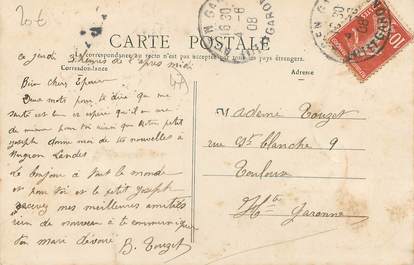 20€
CARTE POSTALE
La correspondance au recto n'est pas acceptée par tous les pays étrangers.
Correspondance
Adresse
ce jeudi 3 heures de l'après midi
Bien chère Épouse
Deux mots pour te dire que ma
santé est bon et espère qu'il en are
de même pour toi ainsi que notre petit
joseph donne moi de tes nouvelles à
Lendes
Le bonjour à tout le monde
et pour toi et le petit Joseph
recevez mes meilleures amitiés
rien de nouveau à te communiquer
ton mari dévoué B. Touzet
Madame Touzet
rue Ste blanche 9
Toulouse
Hte Garonne
6 30
08
GARONNE
10